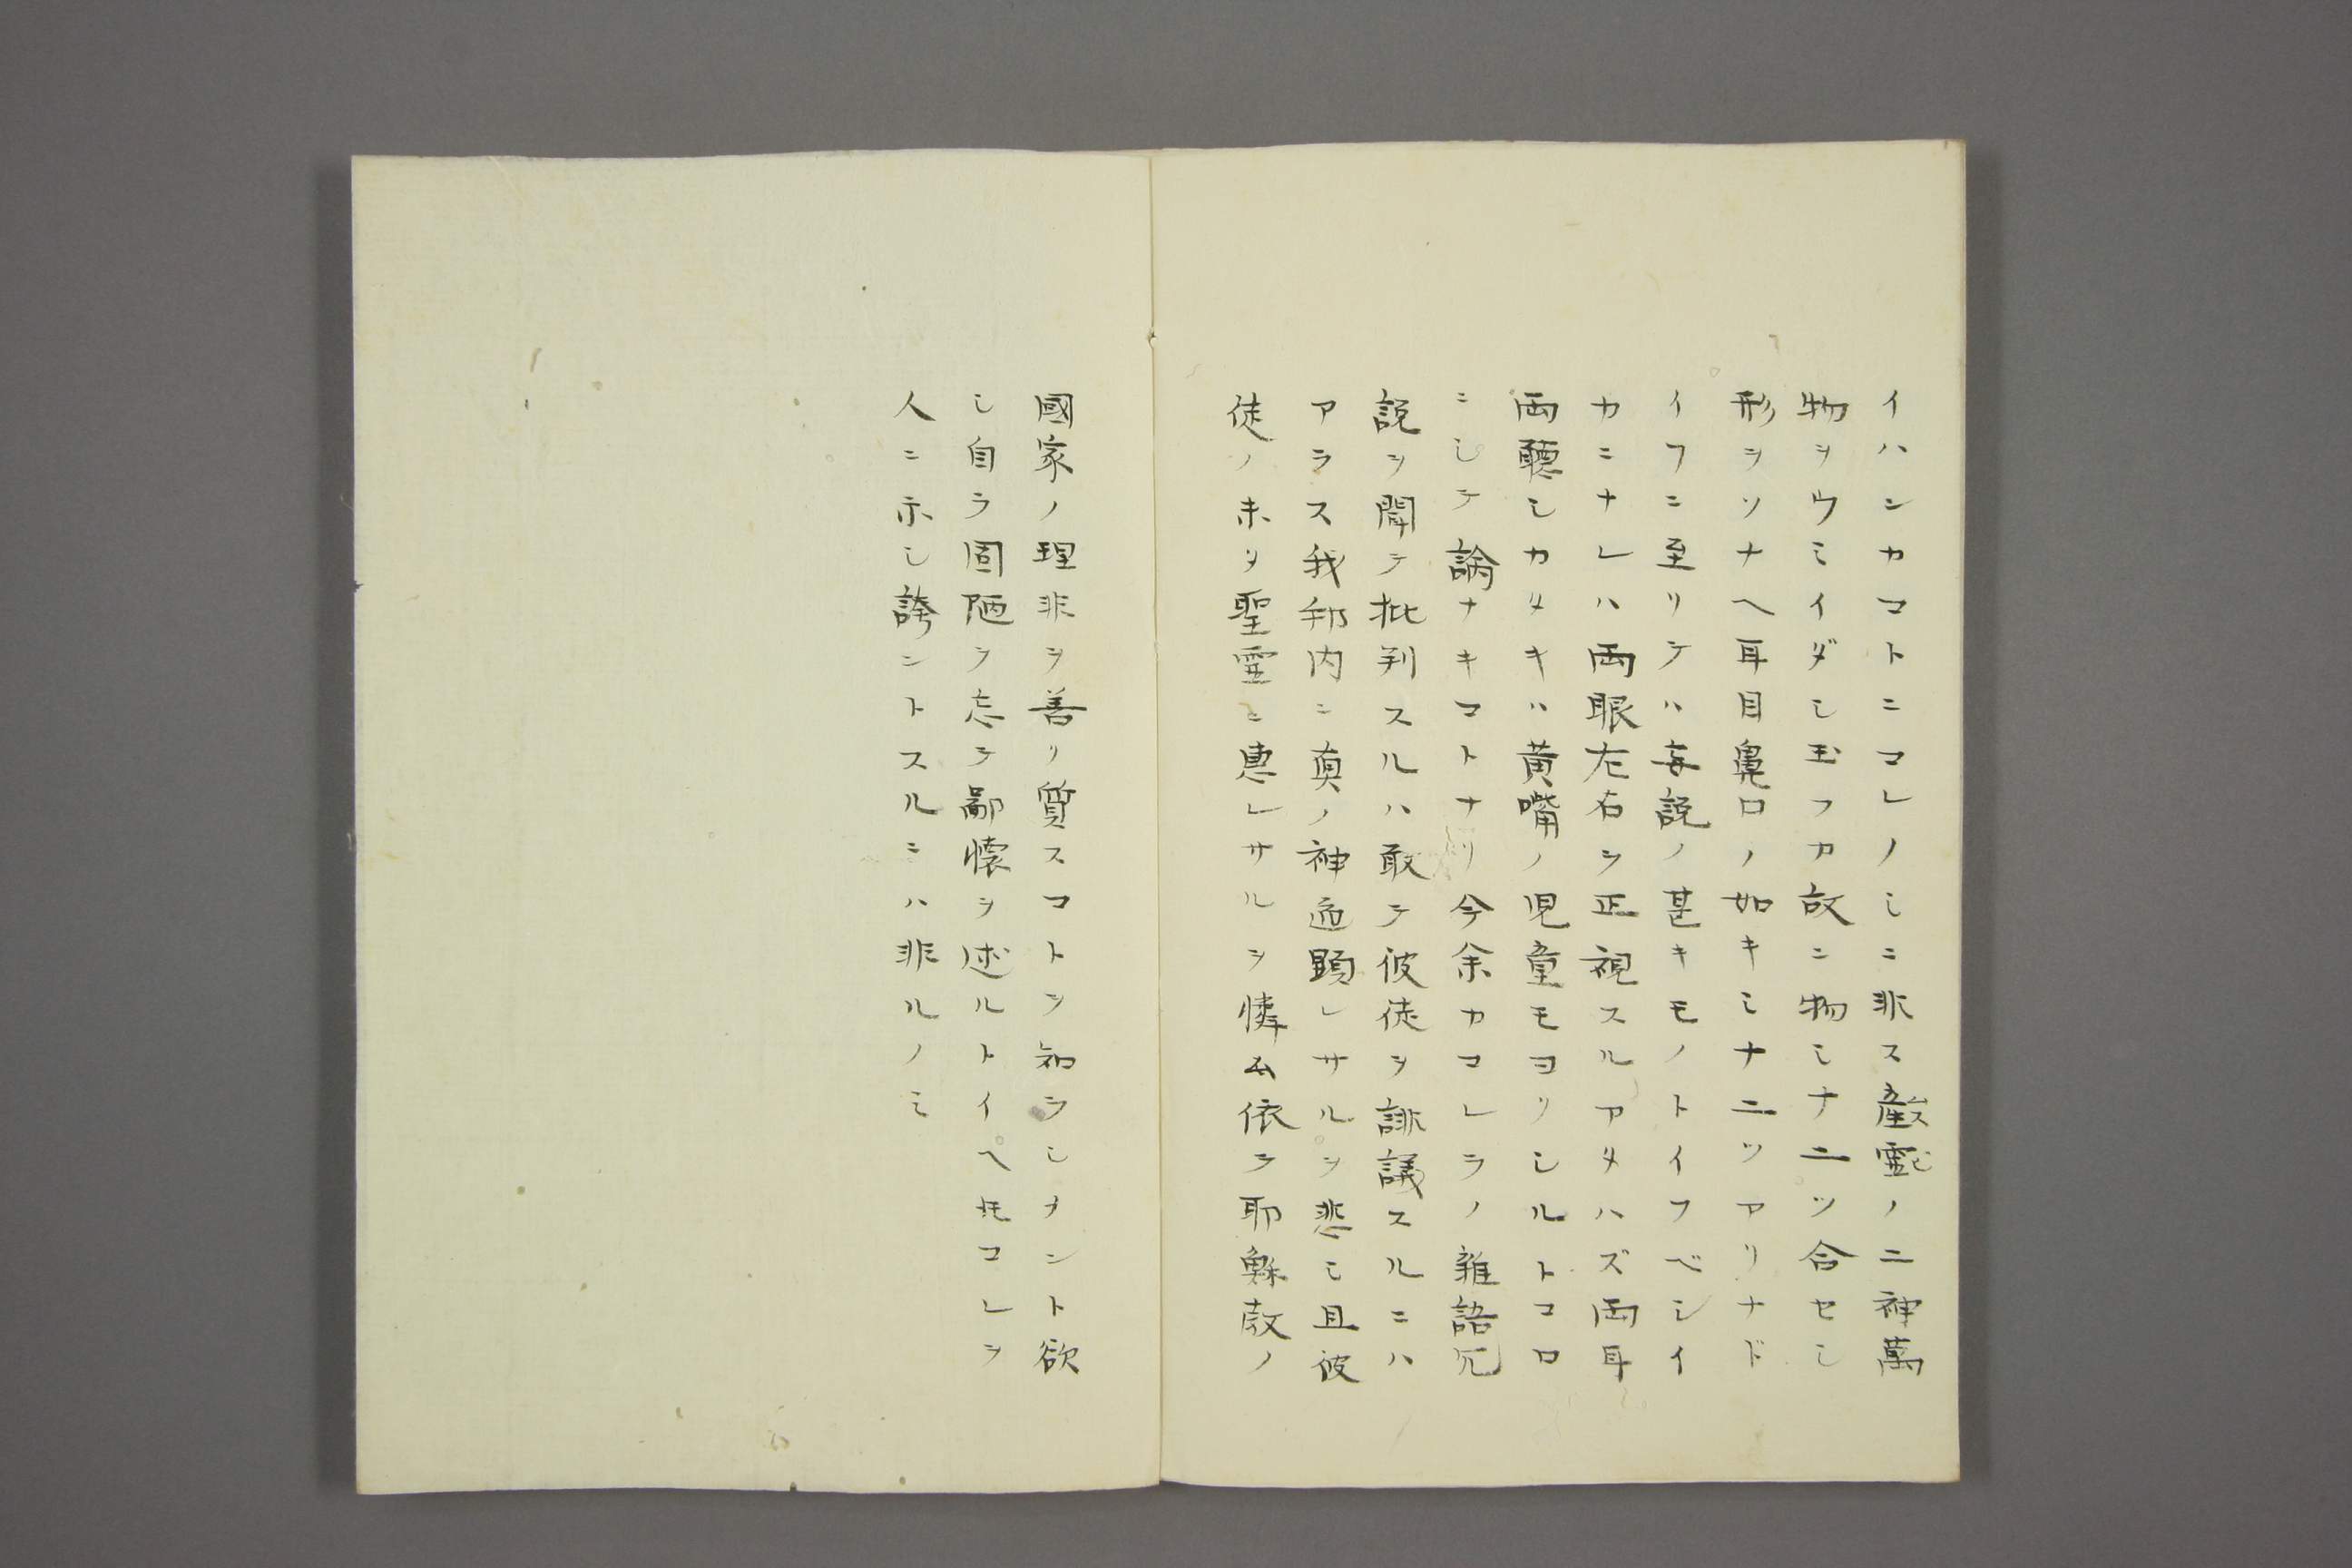 イハンカコトニコレノミニ非ス産霊ムスビノ二神萬
物ヲウミイダシ玉フカ故ニ物ミナ二ツ合セシ
形ヲソナヘ耳目鼻口ノ如キミナ二ツアリナド
イフニ至リテハ妄説ノ甚キモノトイフベシイ
カニナレハ両眼左右ヲ正視スルアタハズ両耳
両聽シカタキハ黄嘴ノ児童モヨリシルトコロ
ニシテ論ナキコトナリ今余カコレラノ雑語冗
説ヲ聞テ批判スルハ敢テ彼徒ヲ誹議スルニハ
アラス我邦内ニ真ノ神道顕レサルヲ悲ミ且彼
徒ノ未タ聖霊ニ恵レサルヲ憐ム依テ耶穌教ノ
國家ノ理非ヲ善リ質スコトヲ知ラシメント欲
シ自ラ固陋ヲ忘テ鄙懐ヲ述ルトイヘ𪜈コレヲ
人ニ示シ誇ントスルニハ非ルノミ